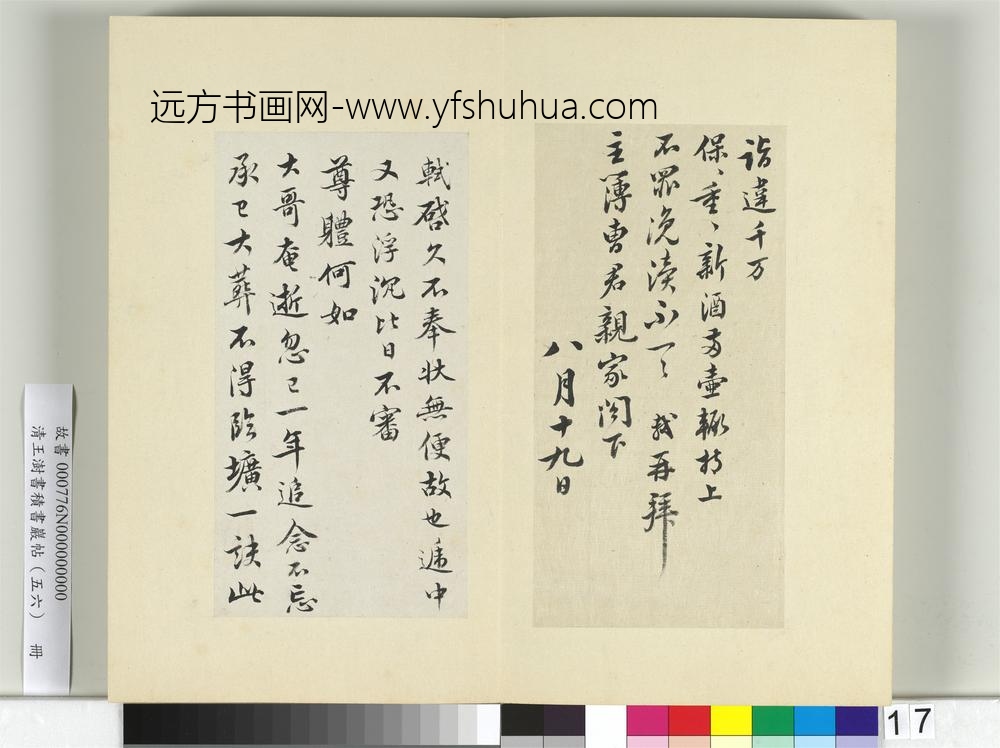 远方书画网-www.yfshuhua.com
詣違千万
保〻重〻新酒两壷輙持上
不罪浼瀆不一〻 軾再拜
主簿曹君親家閤下
八月十九日
軾啓久不奉状無便故也遞中
又恐浮沉比日不審
尊體何如
大哥奄逝忽已一年追念不忘
承已大葬不得臨壙一訣此
故書 000776N000000000
清王澍書積書巖帖(五六) 冊
17